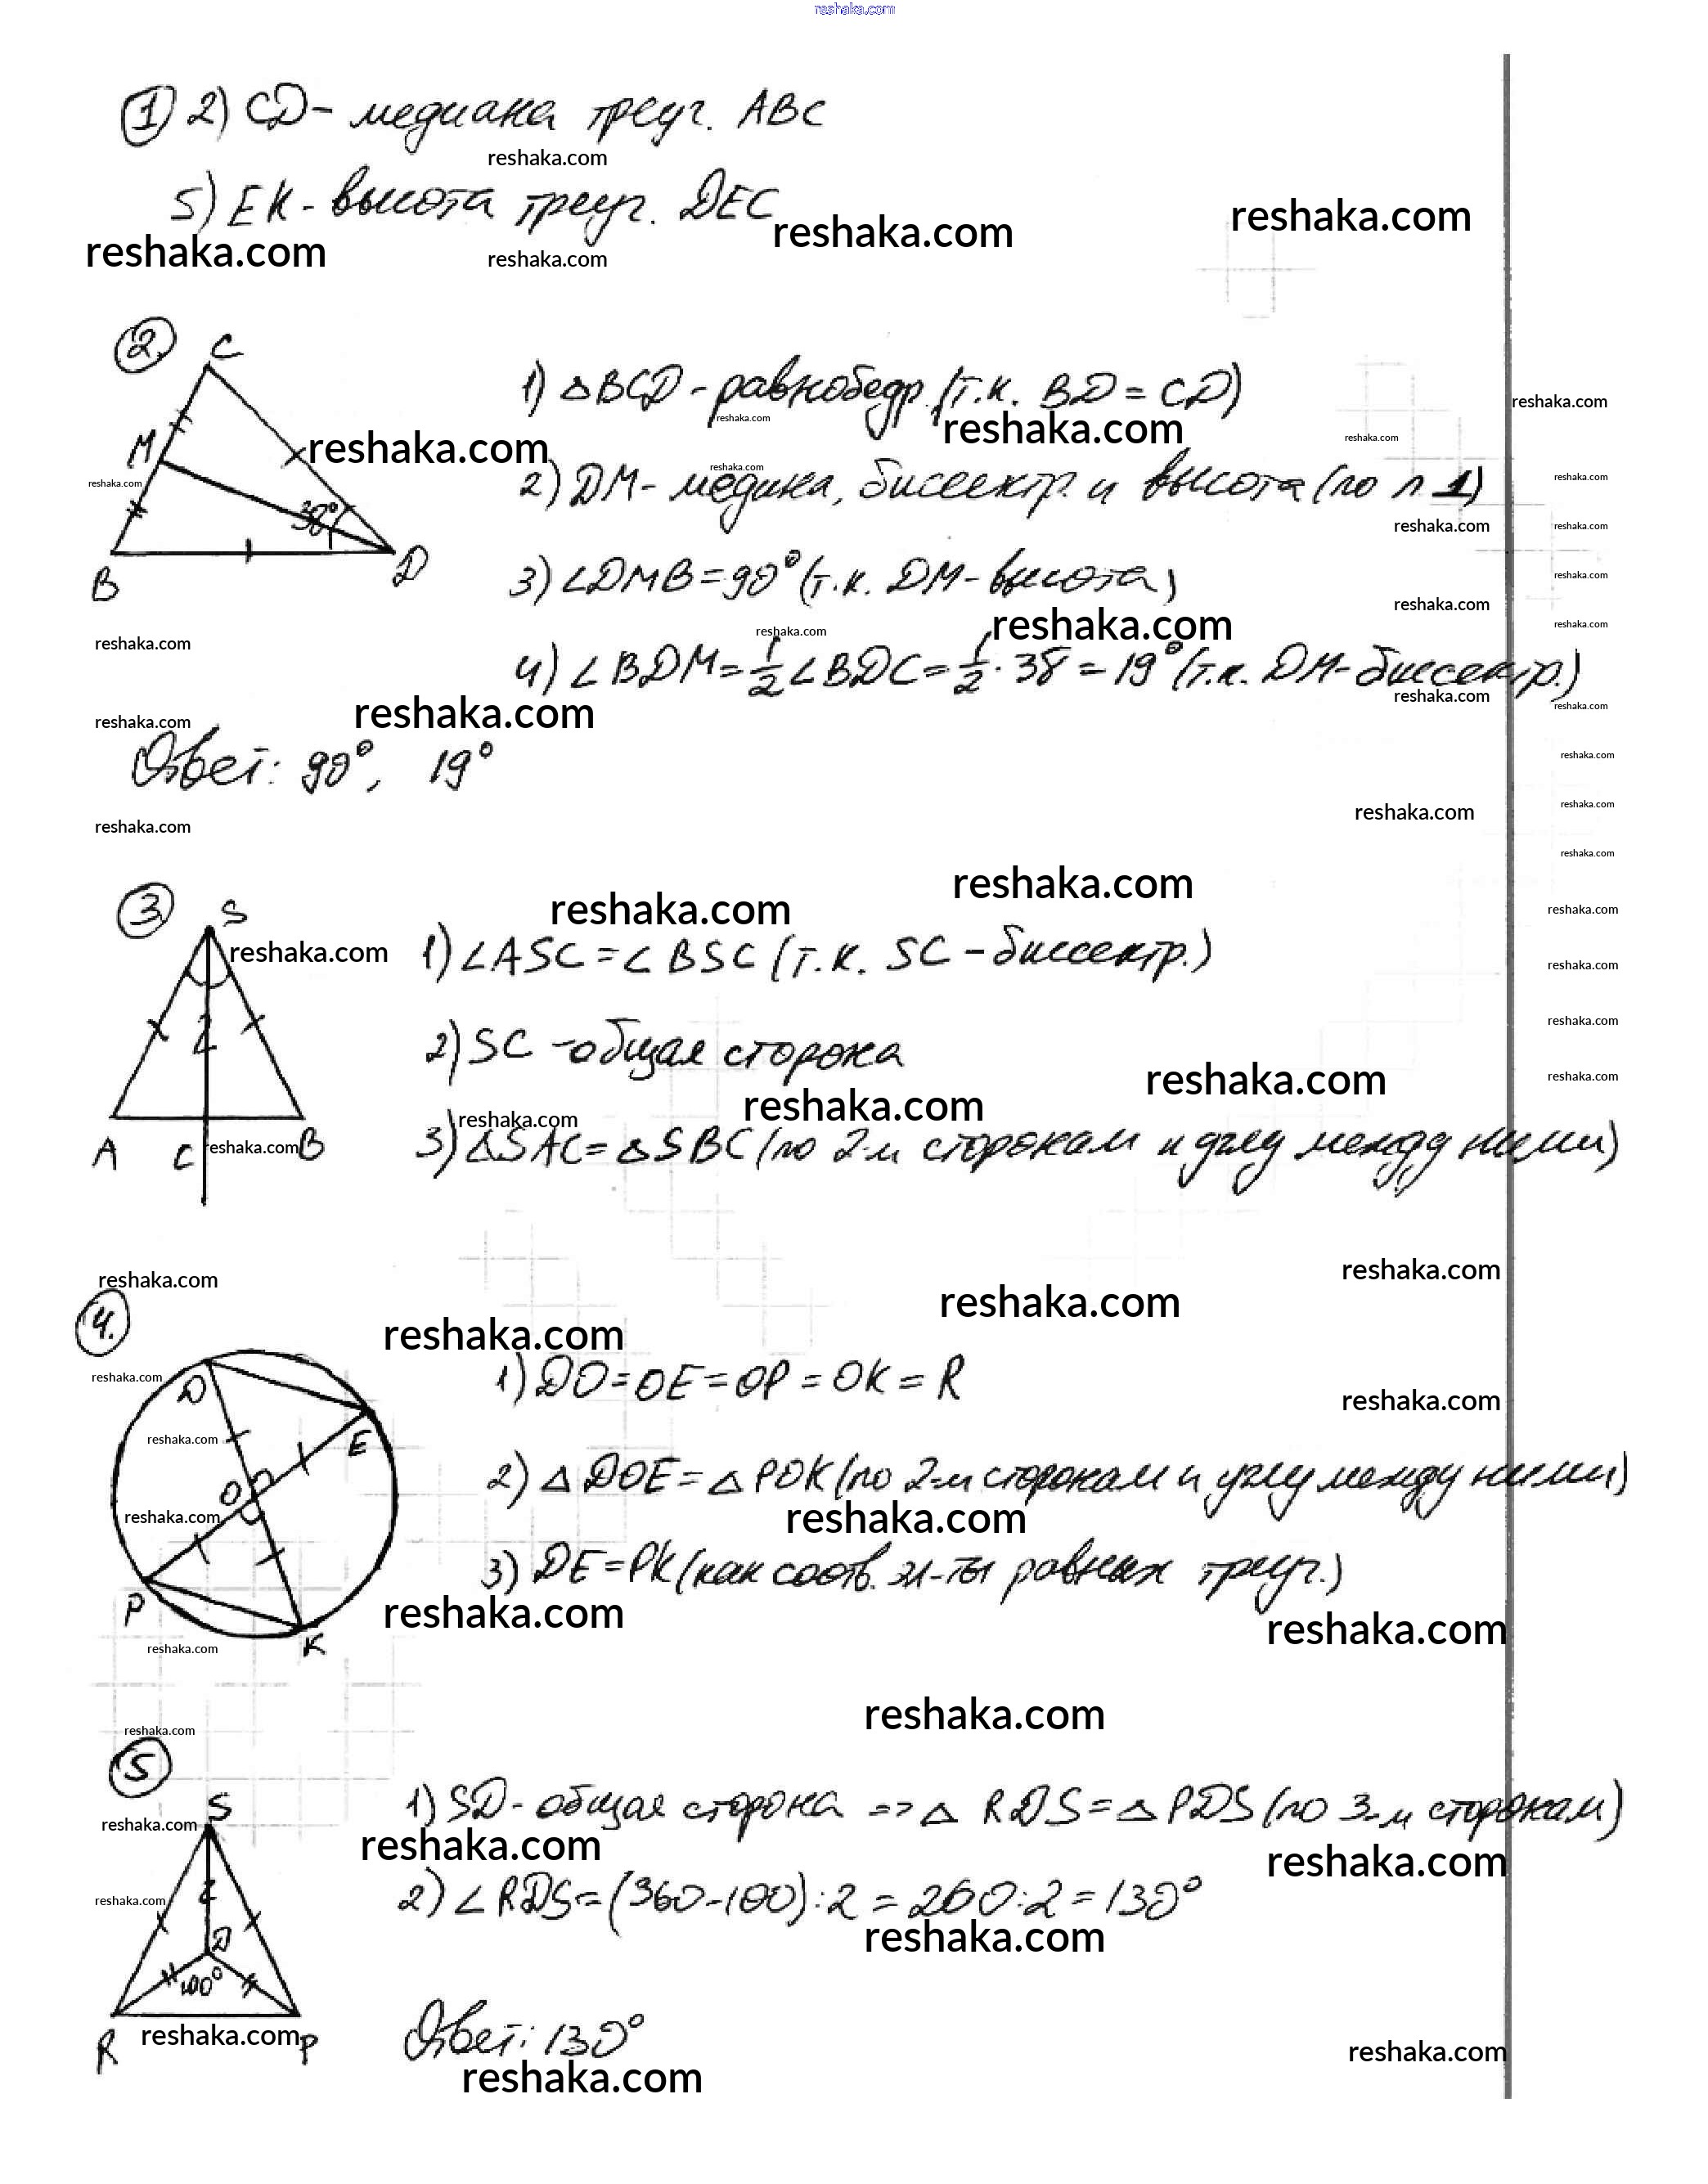 reshaka.com
1) 2) CD - медиана треуг. ABC
reshaka.com
5) EK - высота треуг. DEC
reshaka.com reshaka.com reshaka.com reshaka.com
2. C
1) △BCD - равнобедр. (т.к. BD = CD)
reshaka.com reshaka.com reshaka.com reshaka.com
M reshaka.com
reshaka.com reshaka.com reshaka.com
2) DM - медика, биссектр. и высота (по п. 1)
38° reshaka.com reshaka.com
B D
3) ∠DMB = 90° (т.к. DM - высота)
reshaka.com reshaka.com reshaka.com
reshaka.com reshaka.com reshaka.com reshaka.com
4) ∠BDM = 1/2 ∠BDC = 1/2 · 38 = 19° (т.к. DM - биссектр.)
reshaka.com reshaka.com reshaka.com reshaka.com
Ответ: 90°, 19°
reshaka.com
reshaka.com reshaka.com reshaka.com
reshaka.com
3 S
reshaka.com reshaka.com reshaka.com
reshaka.com
1) ∠ASC = ∠BSC (т.к. SC - биссектр.)
reshaka.com
reshaka.com
2) SC - общая сторона
reshaka.com reshaka.com reshaka.com
reshaka.com
A C reshaka.com B
3) △SAC = △SBC (по 2-м сторонам и углу между ними)
reshaka.com reshaka.com
reshaka.com
4.
reshaka.com
reshaka.com
D
1) DO = OE = OP = OK = R
reshaka.com
reshaka.com E
O
2) △DOE = △POK (по 2-м сторонам и углу между ними)
reshaka.com reshaka.com
3) DE = PK (как соотв. эл-ты равных треуг.)
P reshaka.com reshaka.com
reshaka.com K
reshaka.com
reshaka.com
5
S
1) SD - общая сторона => △RDS = △PDS (по 3-м сторонам)
reshaka.com reshaka.com reshaka.com
reshaka.com
2) ∠RDS = (360-100):2 = 260:2 = 130°
D reshaka.com
100°
R reshaka.com P
Ответ: 130°
reshaka.com
reshaka.com